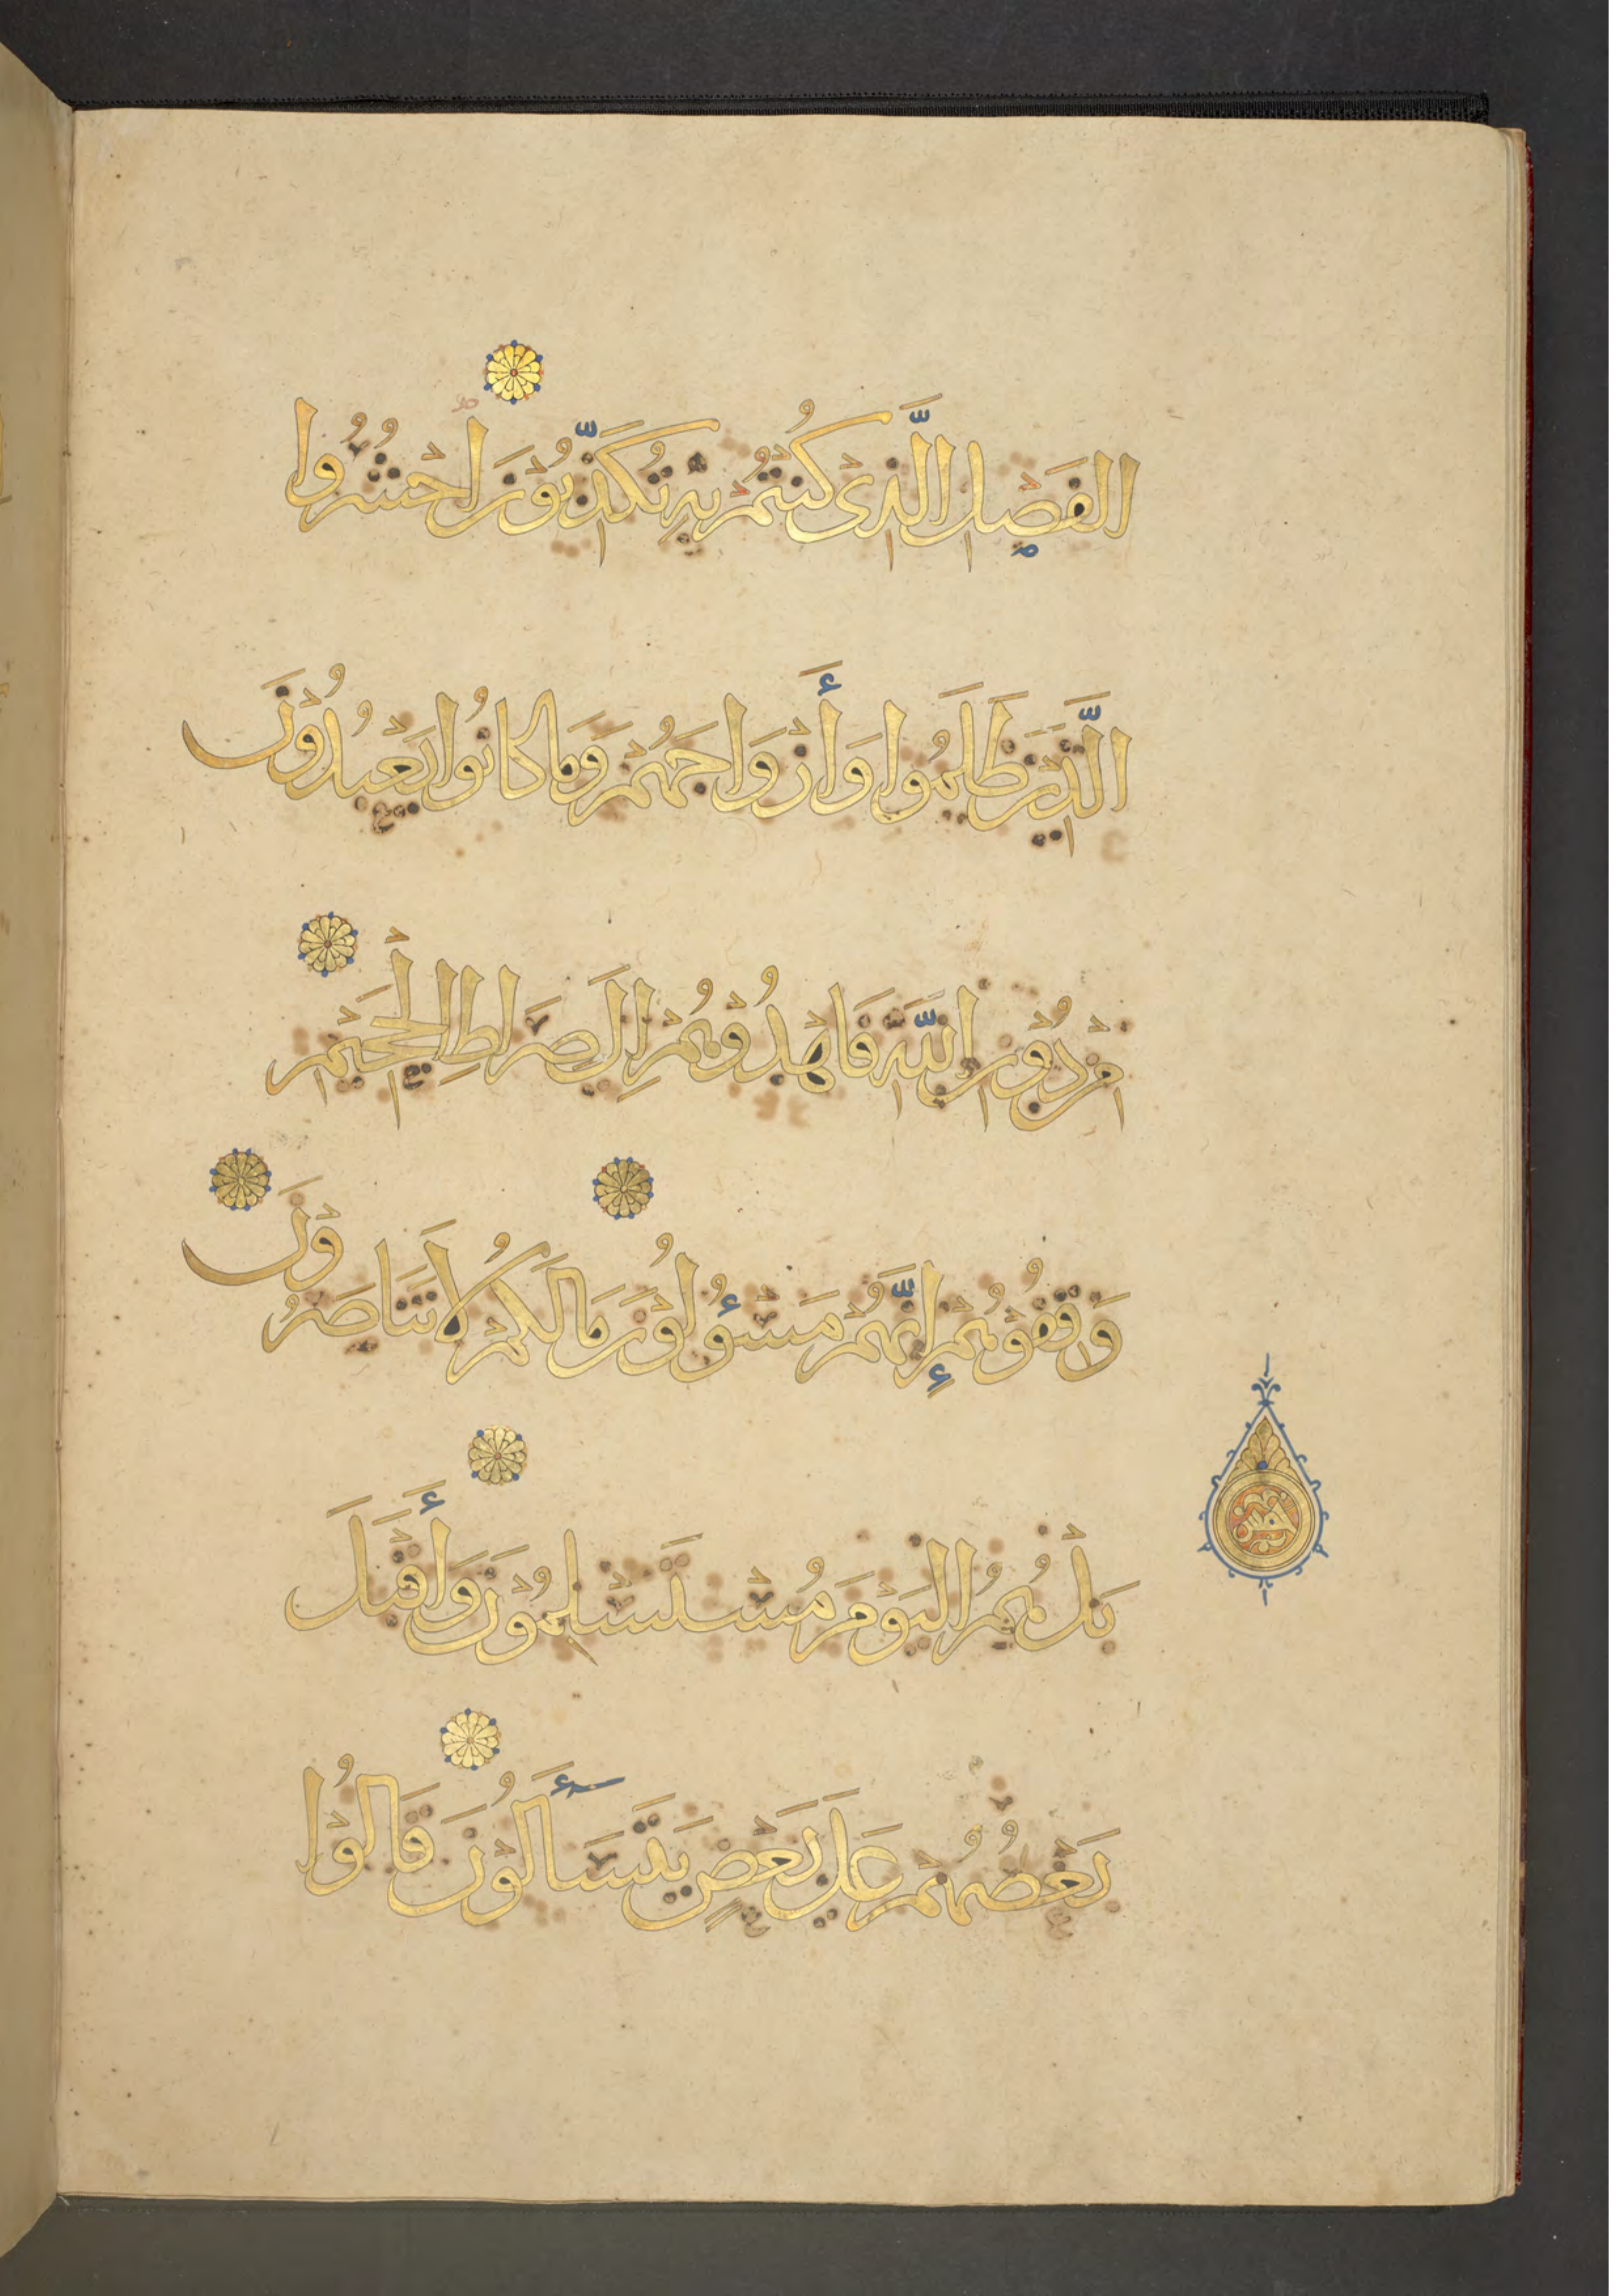 الفَصْلِ الَّذِي كُنتُمْ بِهِ تُكَذِّبُونَ احْشُرُوا
الَّذِينَ ظَلَمُوا وَأَزْوَاجَهُمْ وَمَا كَانُوا يَعْبُدُونَ
مِنْ دُونِ اللَّهِ فَاهْدُوهُمْ إِلَى صِرَاطِ الْجَحِيمِ
وَقِفُوهُمْ إِنَّهُمْ مَسْئُولُونَ مَا لَكُمْ لَا تَنَاصَرُونَ
بَلْ هُمُ الْيَوْمَ مُسْتَسْلِمُونَ وَأَقْبَلَ
بَعْضُهُمْ عَلَى بَعْضٍ يَتَسَاءَلُونَ قَالُوا